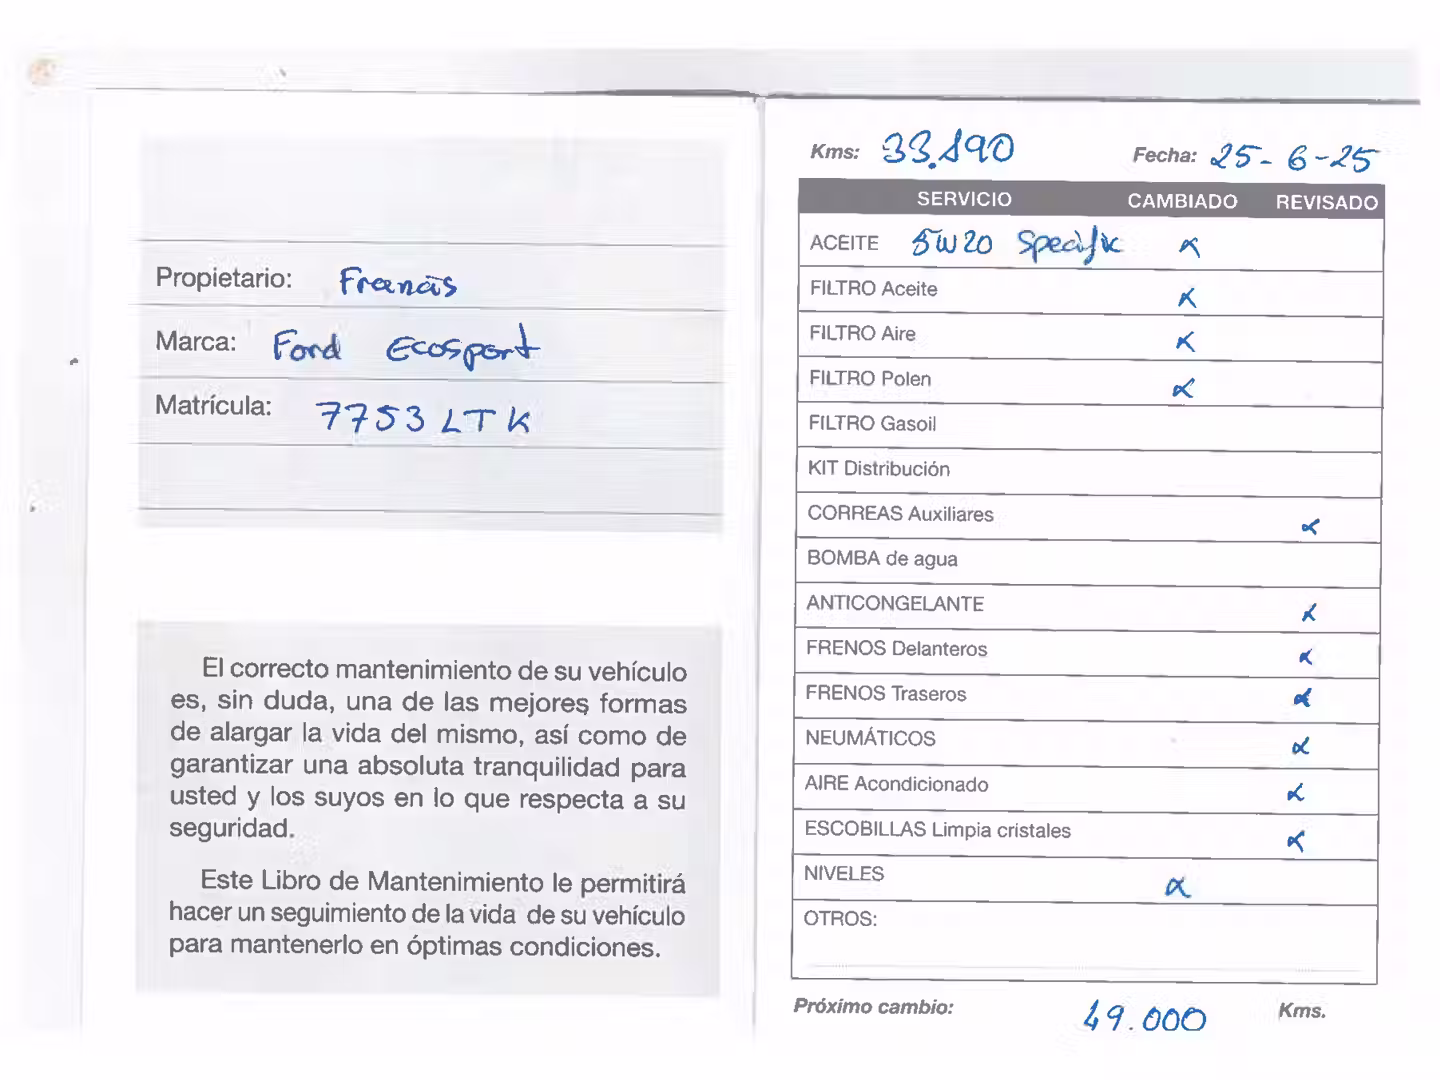 Propietario: Francis
Marca: Ford Ecosport
Matrícula: 7753 LTK
El correcto mantenimiento de su vehículo
es, sin duda, una de las mejores formas
de alargar la vida del mismo, así como de
garantizar una absoluta tranquilidad para
usted y los suyos en lo que respecta a su
seguridad.
Este Libro de Mantenimiento le permitirá
hacer un seguimiento de la vida de su vehículo
para mantenerlo en óptimas condiciones.
Kms: 33.190 Fecha: 25-6-25
SERVICIO CAMBIADO REVISADO
ACEITE 5W20 Specific x
FILTRO Aceite x
FILTRO Aire x
FILTRO Polen x
FILTRO Gasoil
KIT Distribución
CORREAS Auxiliares x
BOMBA de agua
ANTICONGELANTE x
FRENOS Delanteros x
FRENOS Traseros x
NEUMÁTICOS x
AIRE Acondicionado x
ESCOBILLAS Limpia cristales x
NIVELES x
OTROS:
Próximo cambio: 49.000 Kms.